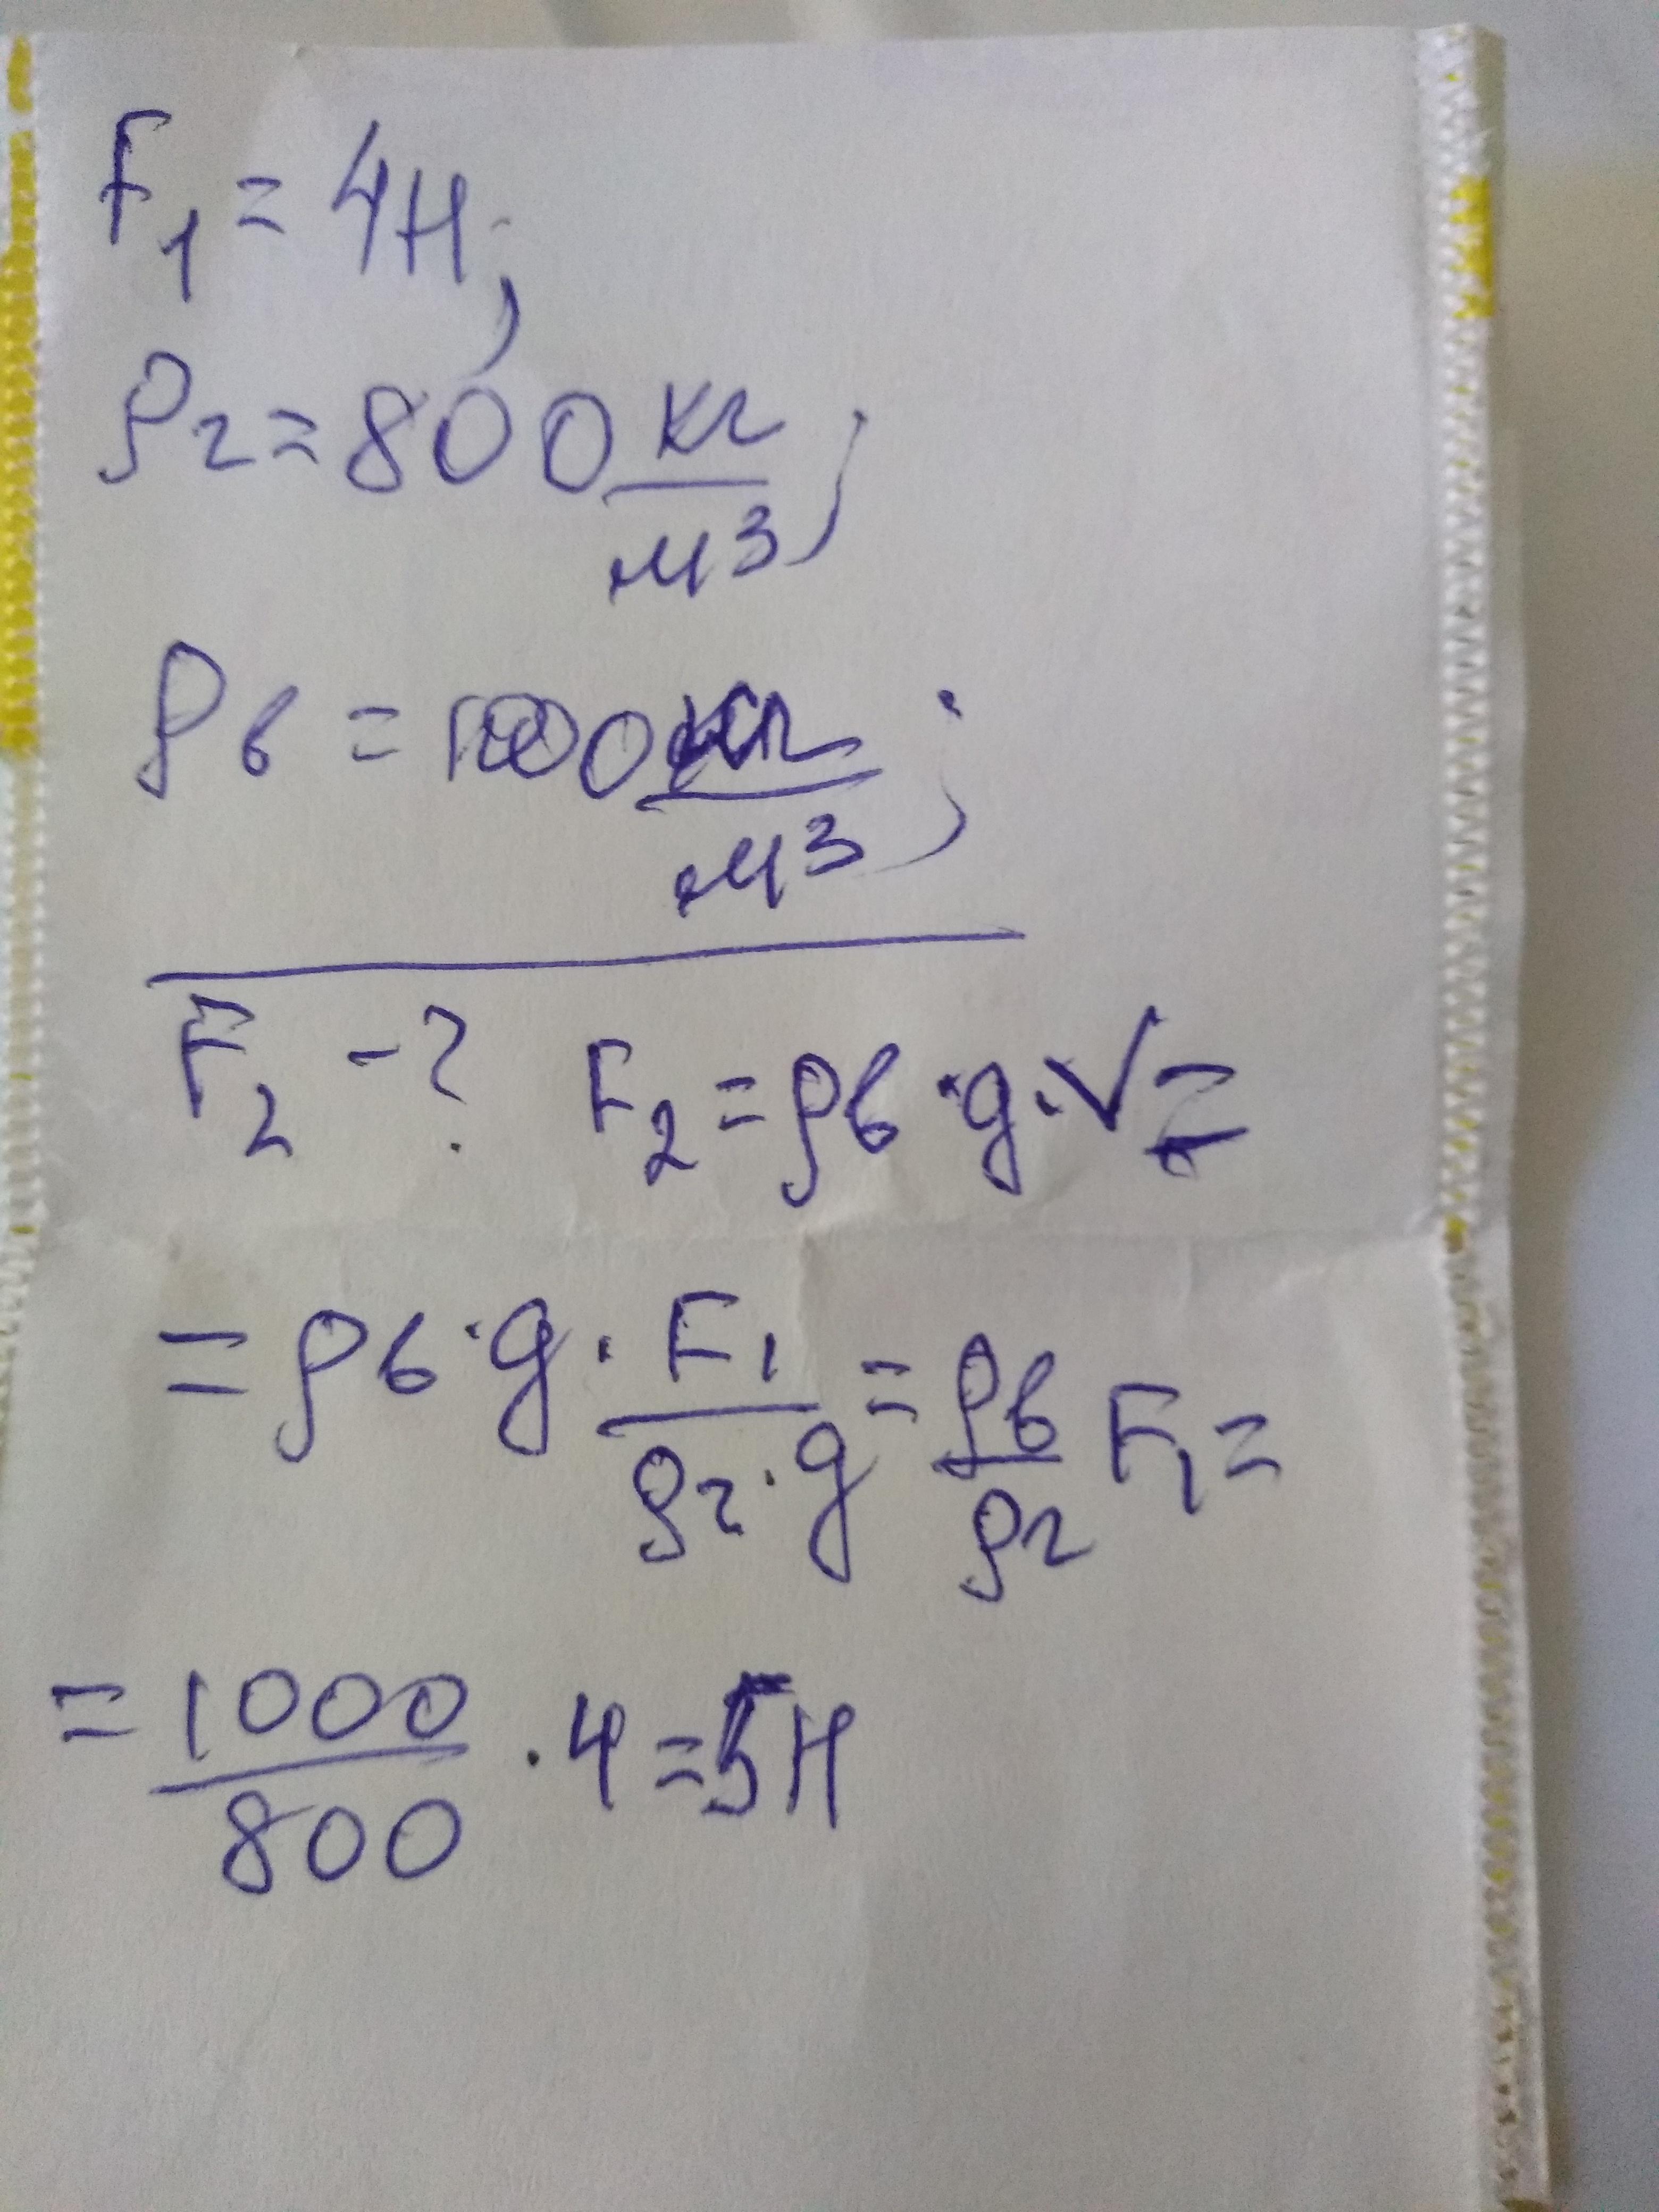 F₁ = 4Н;
ρг = 800 кг/м³;
ρв = 1000 кг/м³;
F₂ - ? F₂ = ρв · g · V =
= ρв · g · F₁/(ρг · g) = ρв/ρг F₁ =
= 1000/800 · 4 = 5Н